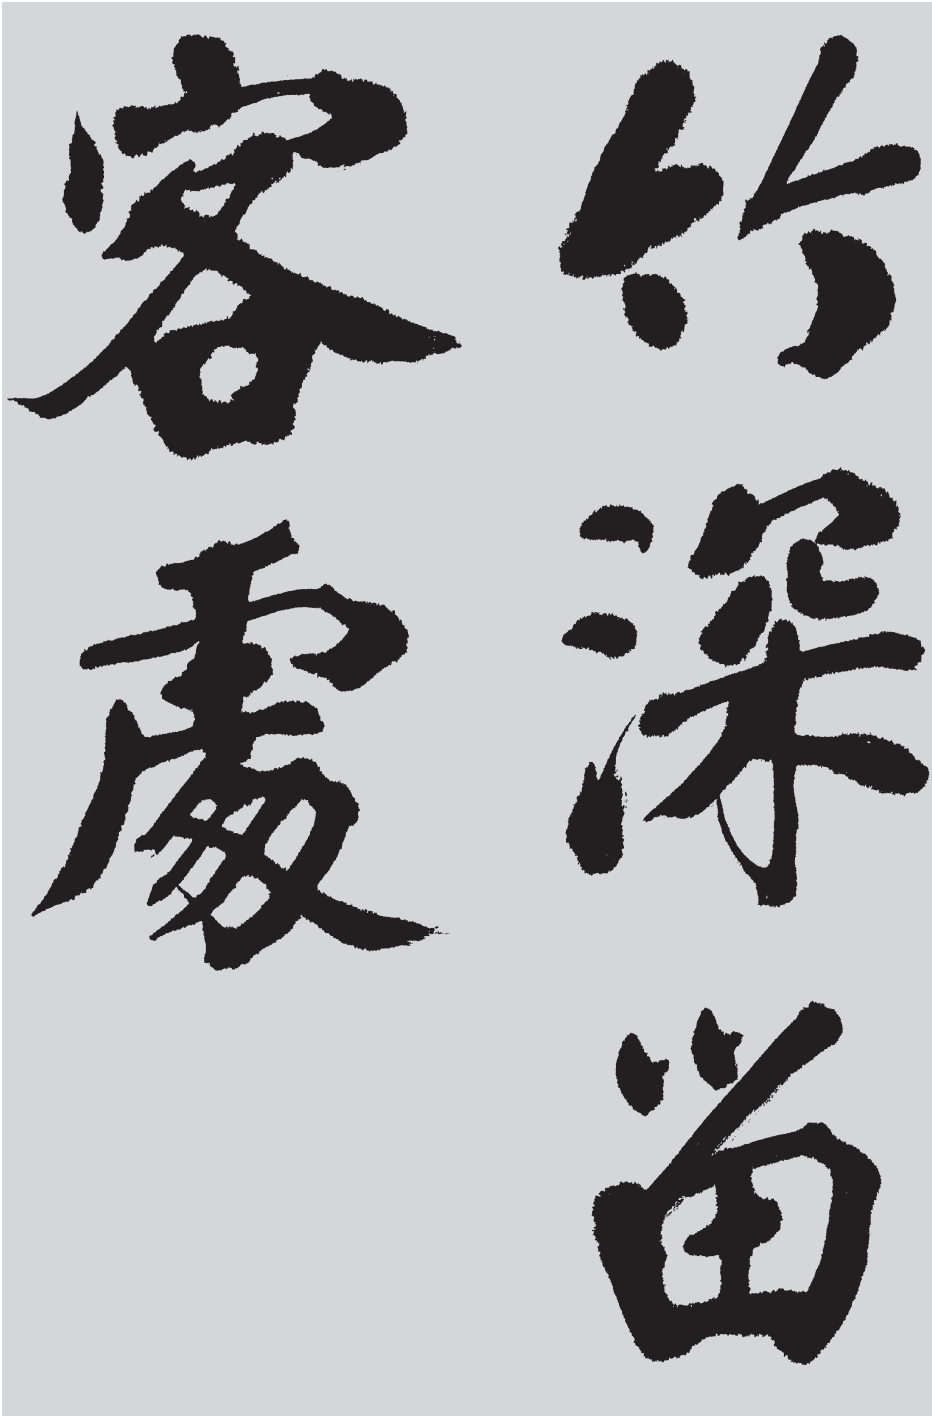 竹深留
客處